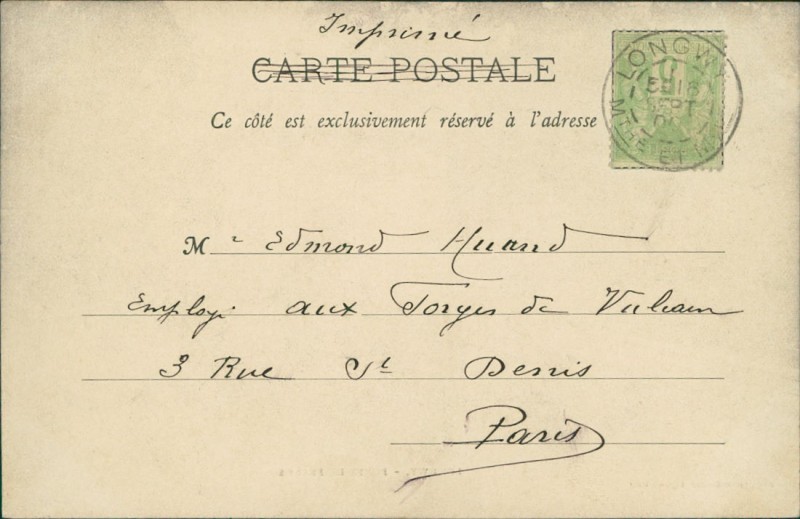 Imprimé
CARTE POSTALE
Ce côté est exclusivement réservé à l'adresse
LONGWY
16
SEPT
MTHE ET M
M r Edmond Huard
Employé aux Forges de Vulcain
3 Rue St Denis
Paris